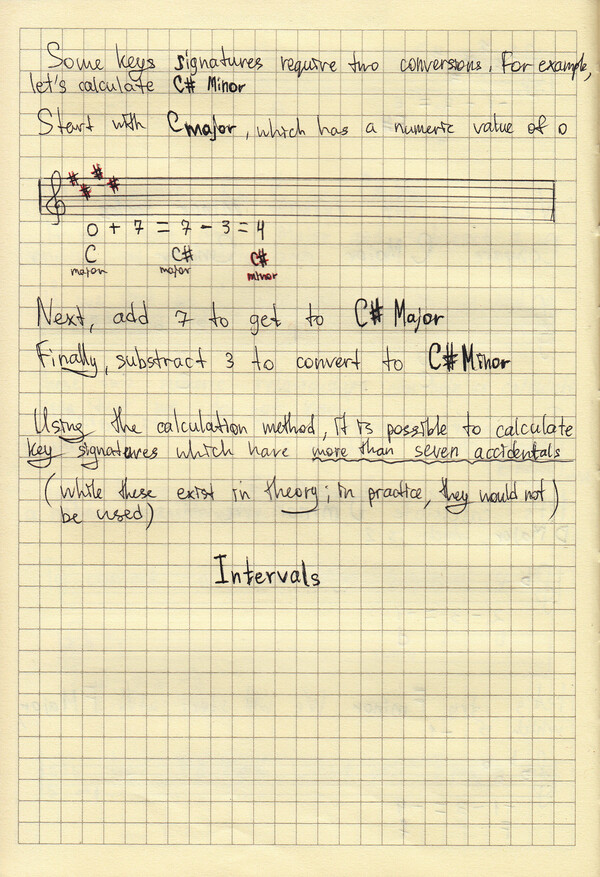 Some keys signatures require two conversions. For example,
let's calculate C# Minor
Start with Cmajor, which has a numeric value of 0
# # # #
0 + 7 = 7 - 3 = 4
C C# C#
major major minor
Next, add 7 to get to C# Major
Finally, substract 3 to convert to C# Minor
Using the calculation method, it is possible to calculate
key signatures which have more than seven accidentals
(while these exist in theory; in practice, they would not)
be used)
Intervals